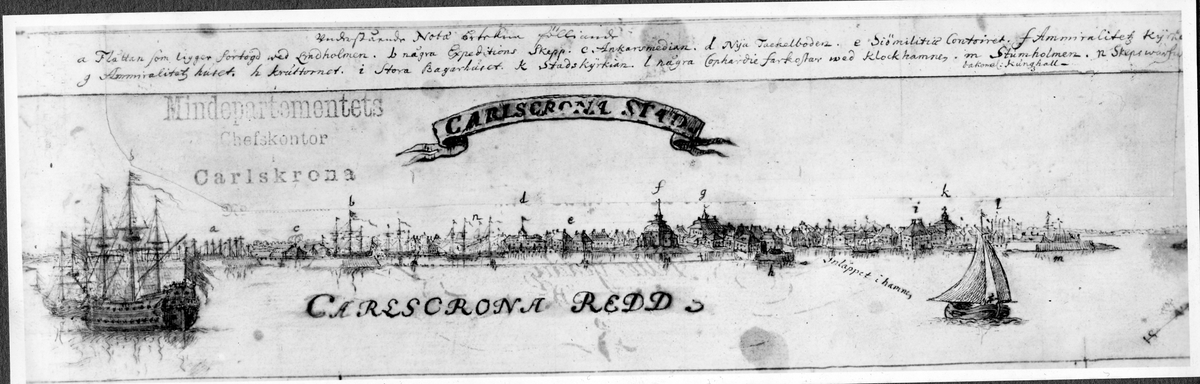 Nota
a Flåttan som ligger förtögd wed Lindholmen. b några Expeditions Skepp. c Ankarsmedian. d Nÿa Tackelboden. e Siömilitiæ Contoiret. f Ammiralitetz Kÿrk
g Ammiralitetz huset. h kruttornet. i Stora Bagarhuset. k Stadskÿrkian. l några Conhardie farkostar wed Klockhamnen. m Stumholmen. n Skeps
Kungshall
Mindepartementets
Chefskontor
Carlskrona
CARLSCRONA STAD
a c b n d e f g h i k l m
Inlåppet i hamnen
CARLSCRONA REDD